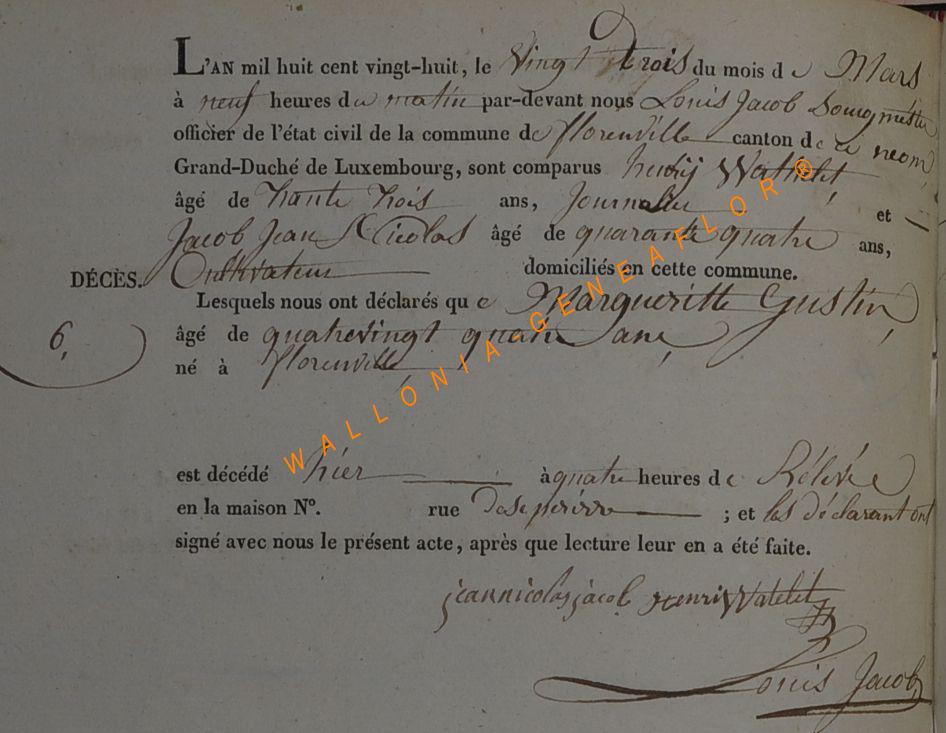 L'AN mil huit cent vingt-huit, le vingt trois du mois de Mars
à neuf heures du matin par-devant nous Louis Jacob Bourgmestre
officier de l'état civil de la commune de florenville canton de ce nom,
Grand-Duché de Luxembourg, sont comparus henry Wathelet,
âgé de trante trois ans, Journalier et
Jacob Jean Nicolas âgé de quarante quatre ans,
DÉCÈS. Cultivateur domiciliés en cette commune.
Lesquels nous ont déclarés que Margueritte Gustin,
6, âgé de quatrevingt quatre ans,
né à florenville,
est décédé hier à quatre heures de Rélévée
en la maison N°. rue ; et les déclarant ont
signé avec nous le présent acte, après que lecture leur en a été faite.
jean nicolas jacob henri Watelet
Louis Jacob
WALLONIA GENEAFLOR ®